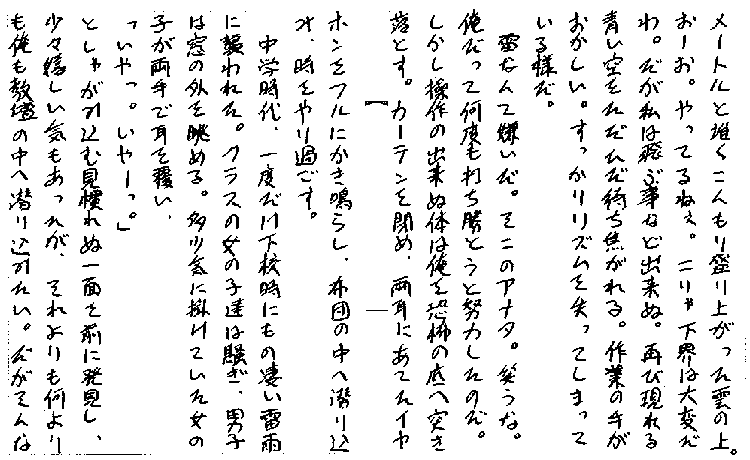 メートルと堆くこんもり盛り上がった雲の上。
おーお。やってるねぇ。こりゃ下界は大変だ
わ。だが私は飛ぶ事など出来ぬ。再び現れる
青い空をただただ待ち焦がれる。作業の手が
おかしい。すっかりリズムを失ってしまって
いる様だ。
雷なんて嫌いだ。そこのアナタ。笑うな。
俺だって何度も打ち勝とうと努力したのだ。
しかし操作の出来ぬ体は俺を恐怖の底へ突き
落とす。カーテンを閉め、両耳にあてたイヤ
ホンをフルにかき鳴らし、布団の中へ潜り込
み、時をやり過ごす。
中学時代、一度だけ下校時にもの凄い雷雨
に襲われた。クラスの女の子達は騒ぎ、男子
は窓の外を眺める。多少気に掛けていた女の
子が両手で耳を覆い、
「いやっ。いやーっ。」
としゃがみ込む見慣れぬ一面を前に発見し、
少々嬉しい気もあったが、それよりも何より
も俺も教壇の中へ潜り込みたい。だがそんな